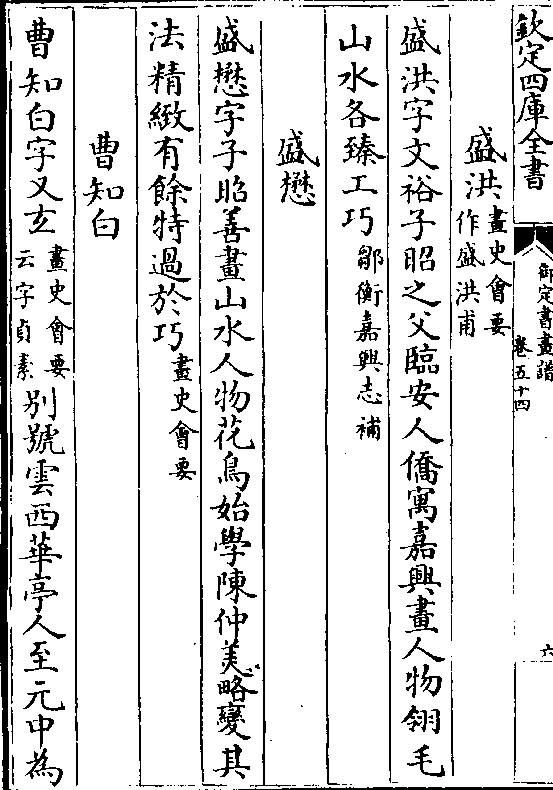 欽定四庫全書
御定書畫譜
卷五十四
六
盛洪畫史會要
作盛洪甫
盛洪字文裕子昭之父臨安人僑寓嘉興畫人物翎毛
山水各臻工巧鄒衡嘉興志補
盛懋
盛懋字子昭善畫山水人物花鳥始學陳仲美略變其
法精緻有餘特過於巧畫史會要
曹知白
曹知白字又玄畫史會要
云字貞素別號雲西華亭人至元中為